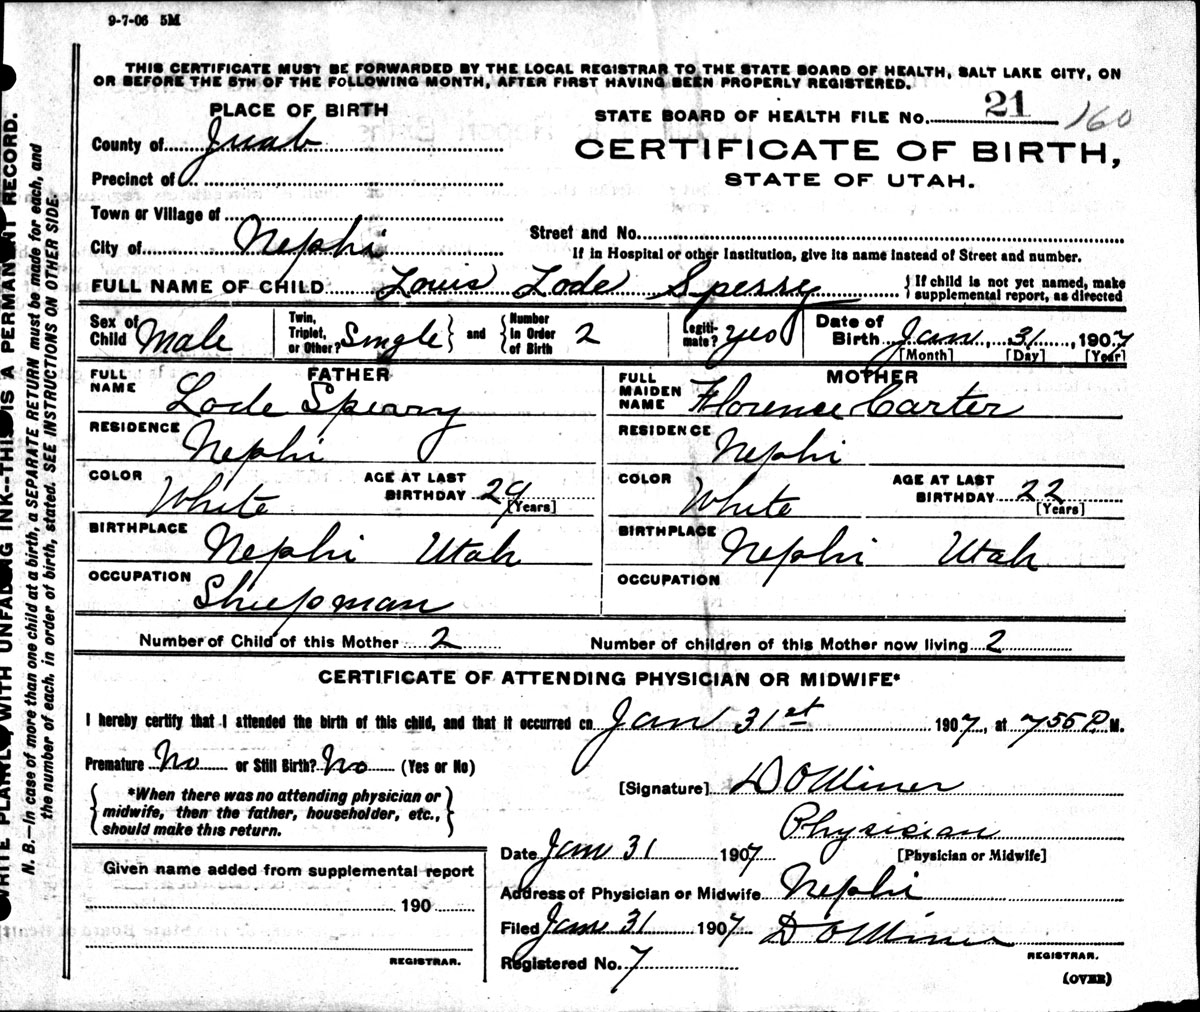 9-7-06 5M
THIS CERTIFICATE MUST BE FORWARDED BY THE LOCAL REGISTRAR TO THE STATE BOARD OF HEALTH, SALT LAKE CITY, ON
OR BEFORE THE 5TH OF THE FOLLOWING MONTH, AFTER FIRST HAVING BEEN PROPERLY REGISTERED.
PLACE OF BIRTH
STATE BOARD OF HEALTH FILE NO. 21 160
County of Juab
CERTIFICATE OF BIRTH,
Precinct of
STATE OF UTAH.
Town or Village of
City of Nephi
Street and No.
If in Hospital or other Institution, give its name instead of Street and number.
FULL NAME OF CHILD Louis Lode Sperry
{ If child is not yet named, make
supplemental report, as directed
Sex of Child Male
Twin, Triplet, or Other? Single } and { Number in Order of Birth 2
Legitimate? yes
Date of Birth Jan, 31, 1907
[Month] [Day] [Year]
FATHER
FULL NAME Lode Speary
RESIDENCE Nephi
COLOR White AGE AT LAST BIRTHDAY 29 [Years]
BIRTHPLACE Nephi Utah
OCCUPATION Sheepman
MOTHER
FULL MAIDEN NAME Florence Carter
RESIDENCE Nephi
COLOR White AGE AT LAST BIRTHDAY 22 [Years]
BIRTHPLACE Nephi Utah
OCCUPATION
Number of Child of this Mother 2 Number of children of this Mother now living 2
CERTIFICATE OF ATTENDING PHYSICIAN OR MIDWIFE*
I hereby certify that I attended the birth of this child, and that it occurred on Jan 31st 1907, at 755 P. M.
Premature No or Still Birth? No (Yes or No)
{ *When there was no attending physician or
midwife, then the father, householder, etc.,
should make this return. }
[Signature] D O Miner
Physician
[Physician or Midwife]
Date Jan 31 1907
Address of Physician or Midwife Nephi
Filed Jan 31 1907 D O Miner
REGISTRAR.
Registered No. 7
(OVER)
Given name added from supplemental report
190
REGISTRAR.
WRITE PLAINLY, WITH UNFADING INK--THIS IS A PERMANENT RECORD.
N. B.—In case of more than one child at a birth, a SEPARATE RETURN must be made for each, and
the number of each, in order of birth, stated. SEE INSTRUCTIONS ON OTHER SIDE.